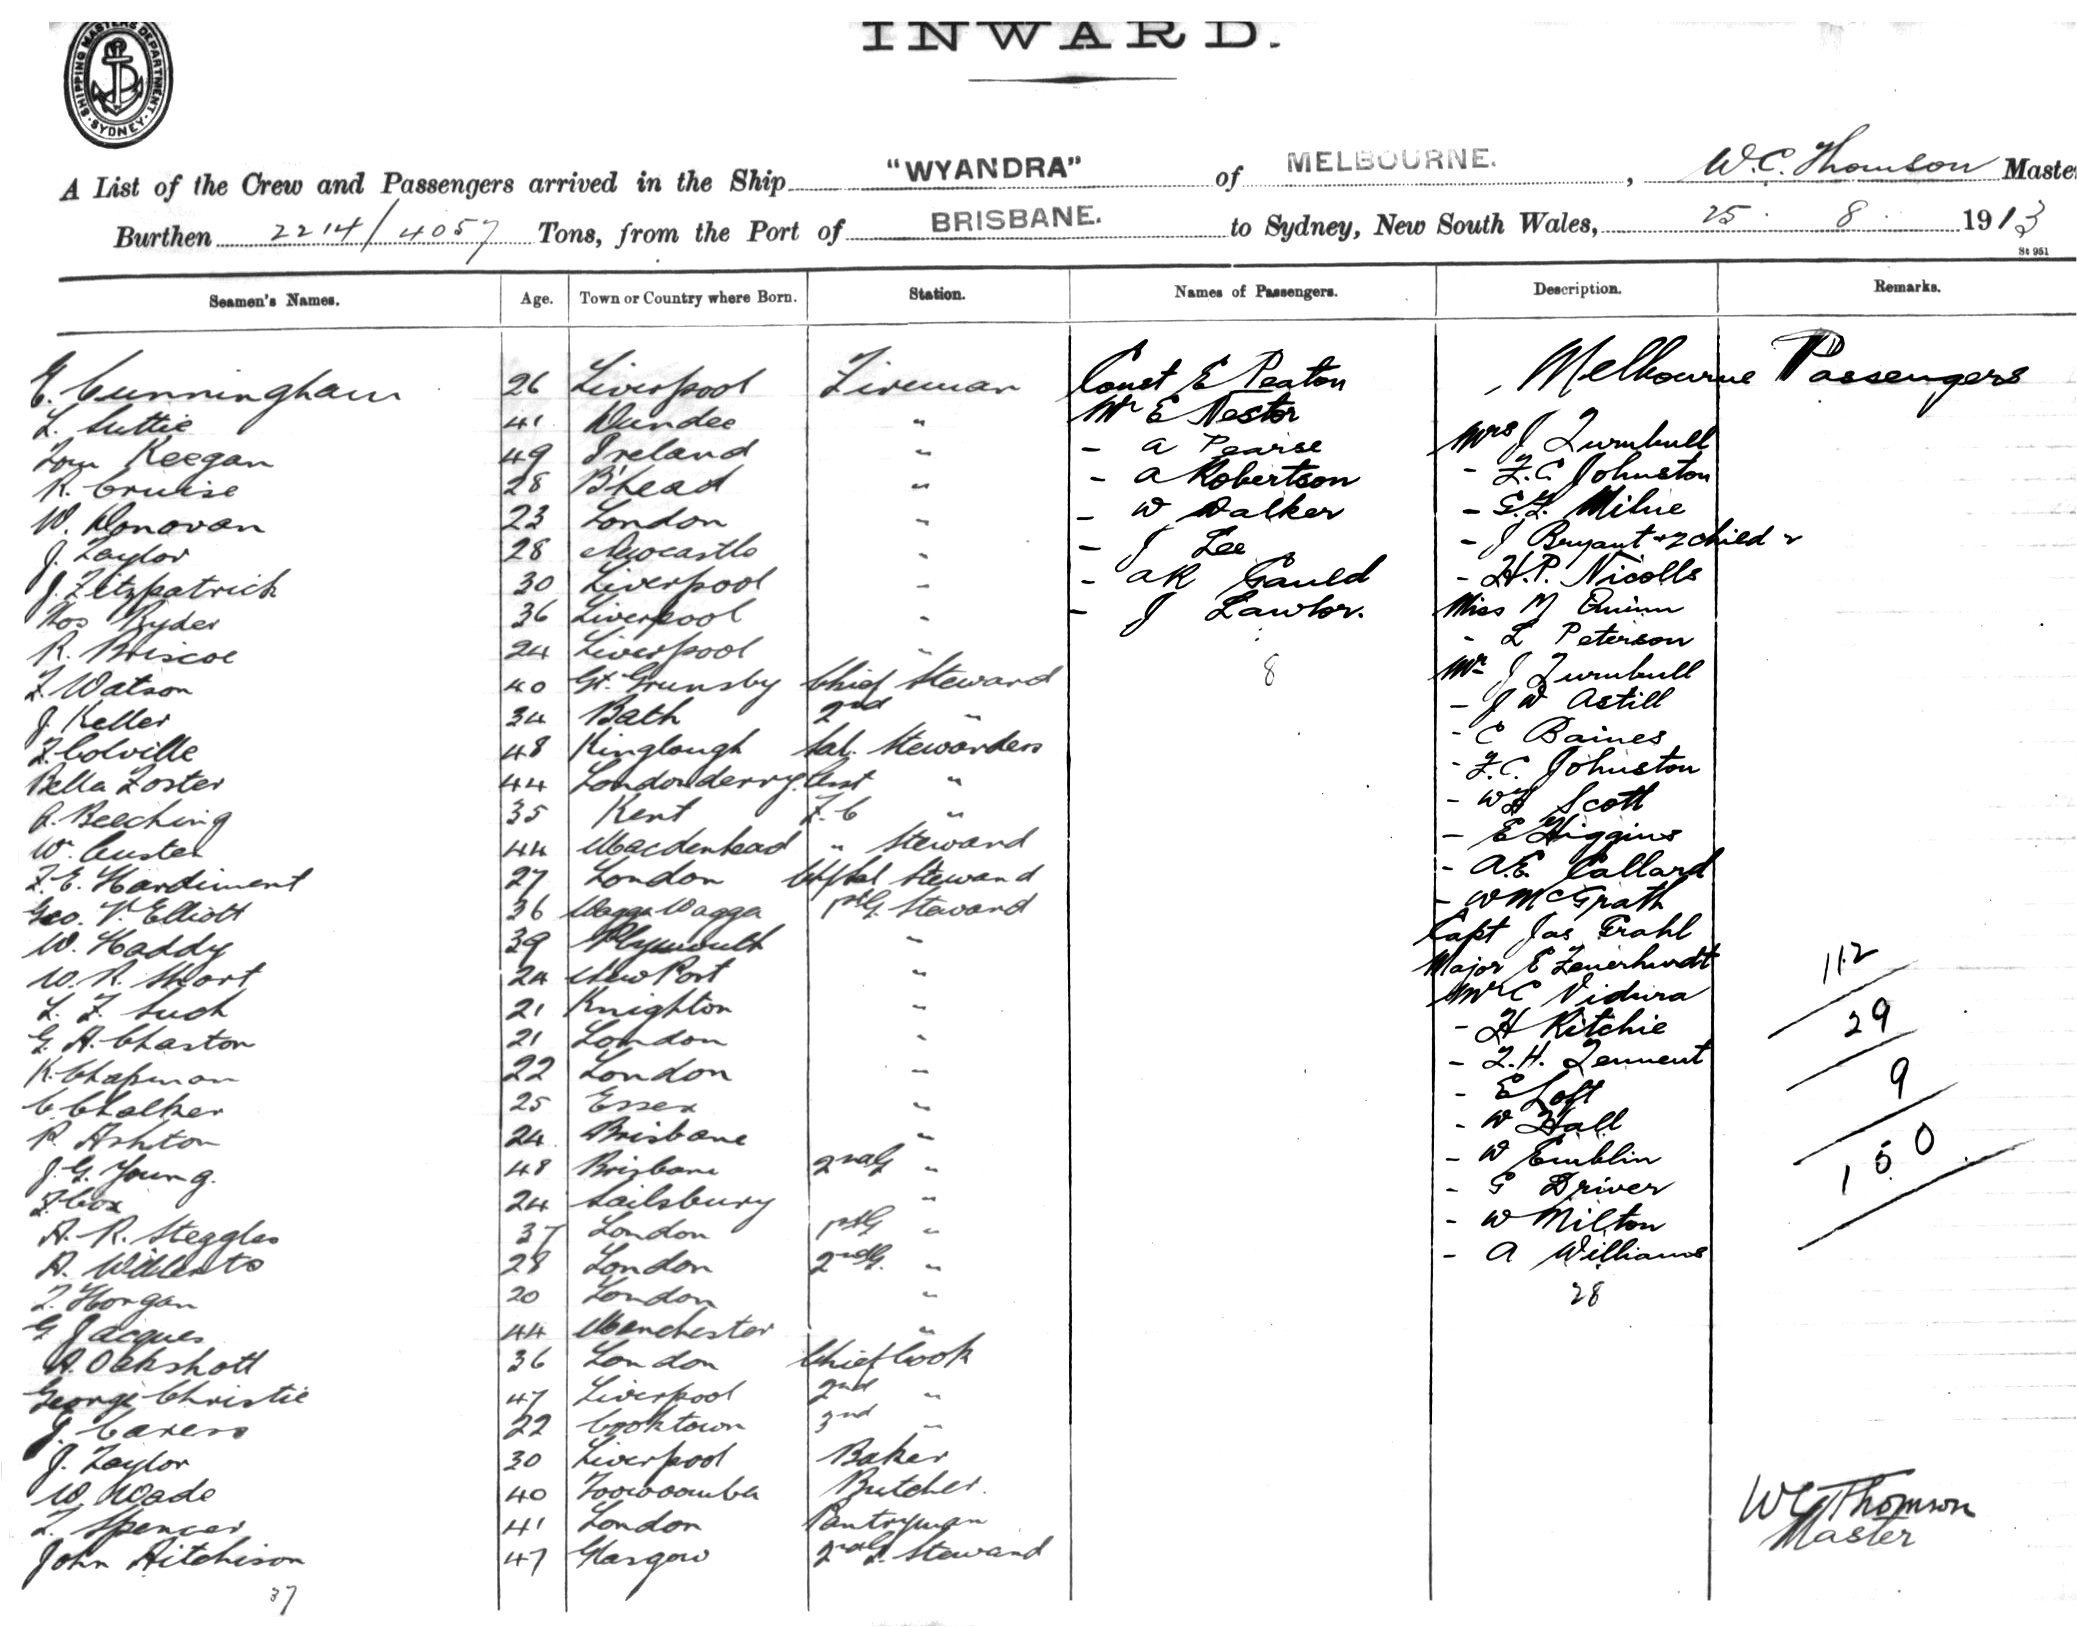 INWARD.
SHIPPING MASTERS DEPARTMENT SYDNEY
A List of the Crew and Passengers arrived in the Ship "WYANDRA" of MELBOURNE. , W. C. Thomson Master
Burthen 2214/4057 Tons, from the Port of BRISBANE. to Sydney, New South Wales, 25. 8. 1913
St 951
Seamen's Names. Age. Town or Country where Born. Station. Names of Passengers. Description. Remarks.
E. Cunningham 26 Liverpool Fireman Const E Peaton Melbourne Passengers
L. Suttie 41 Dundee " Mr E Nestor
Tom Keegan 49 Ireland " - A Pearse Mrs J Turnbull
R. Cruise 28 B'head " - A Robertson - F. C. Johnston
W. Donovan 23 London " - W Walker - G. F. Milne
J. Taylor 28 Newcastle " - J Lee - J Bryant + 2 child
J. Fitzpatrick 30 Liverpool " - A R Gauld - H. P. Nicolls
Thos Ryder 36 Liverpool " - J Lawlor. Miss M Quinn
R. Briscoe 24 Liverpool " - L Peterson
F. Watson 40 Gt. Grimsby Chief Steward 8 Mr J Turnbull
J. Keller 34 Bath 2nd " - J W Astill
F. Colville 48 Kinglough Sal. Stewardess - C Baines
Bella Foster 44 Londonderry Asst " - F. C. Johnston
A. Beeching 35 Kent F. C " - Scott
W. Custer 44 Maedenhead " Steward - E Higgins
F. E. Hardiment 27 London Sal Steward - A. E. Callard
Geo. V. Elliott 36 Wagga Wagga 1st G. Steward - W McGrath
W. Haddy 39 Plymouth " Capt Jas Grahl
W. R. Short 24 New Port " Major E 112
L. F. Such 21 Knighton " Mr C Vidura
G. H. Chaston 21 London " - H Ritchie 29
K. Chapman 22 London " - F. H. Tennent
C. Chalker 25 Essex " - E Loft 9
P. Ashton 24 Brisbane " - W Hall
J. G. Young. 48 Brisbane 2nd G " - W Emblin 150
F. Cox 24 Sailsbury " - G Driver
H. R. Steggles 37 London 1st G " - W Milton
A. 28 London 2nd G. " - A Williams
T. Horgan 20 London " 28
G Jacques 44 Manchester "
A. Oakshott 36 London Chief Cook
George Christie 47 Liverpool 2nd "
J. Caress 22 Cooktown 3rd "
J. Taylor 30 Liverpool Baker
W. Wade 40 Toowoomba Butcher.
F. Spencer 41 London Pantryman W C Thomson
John Aitchison 47 Glasgow 2nd Steward Master
37